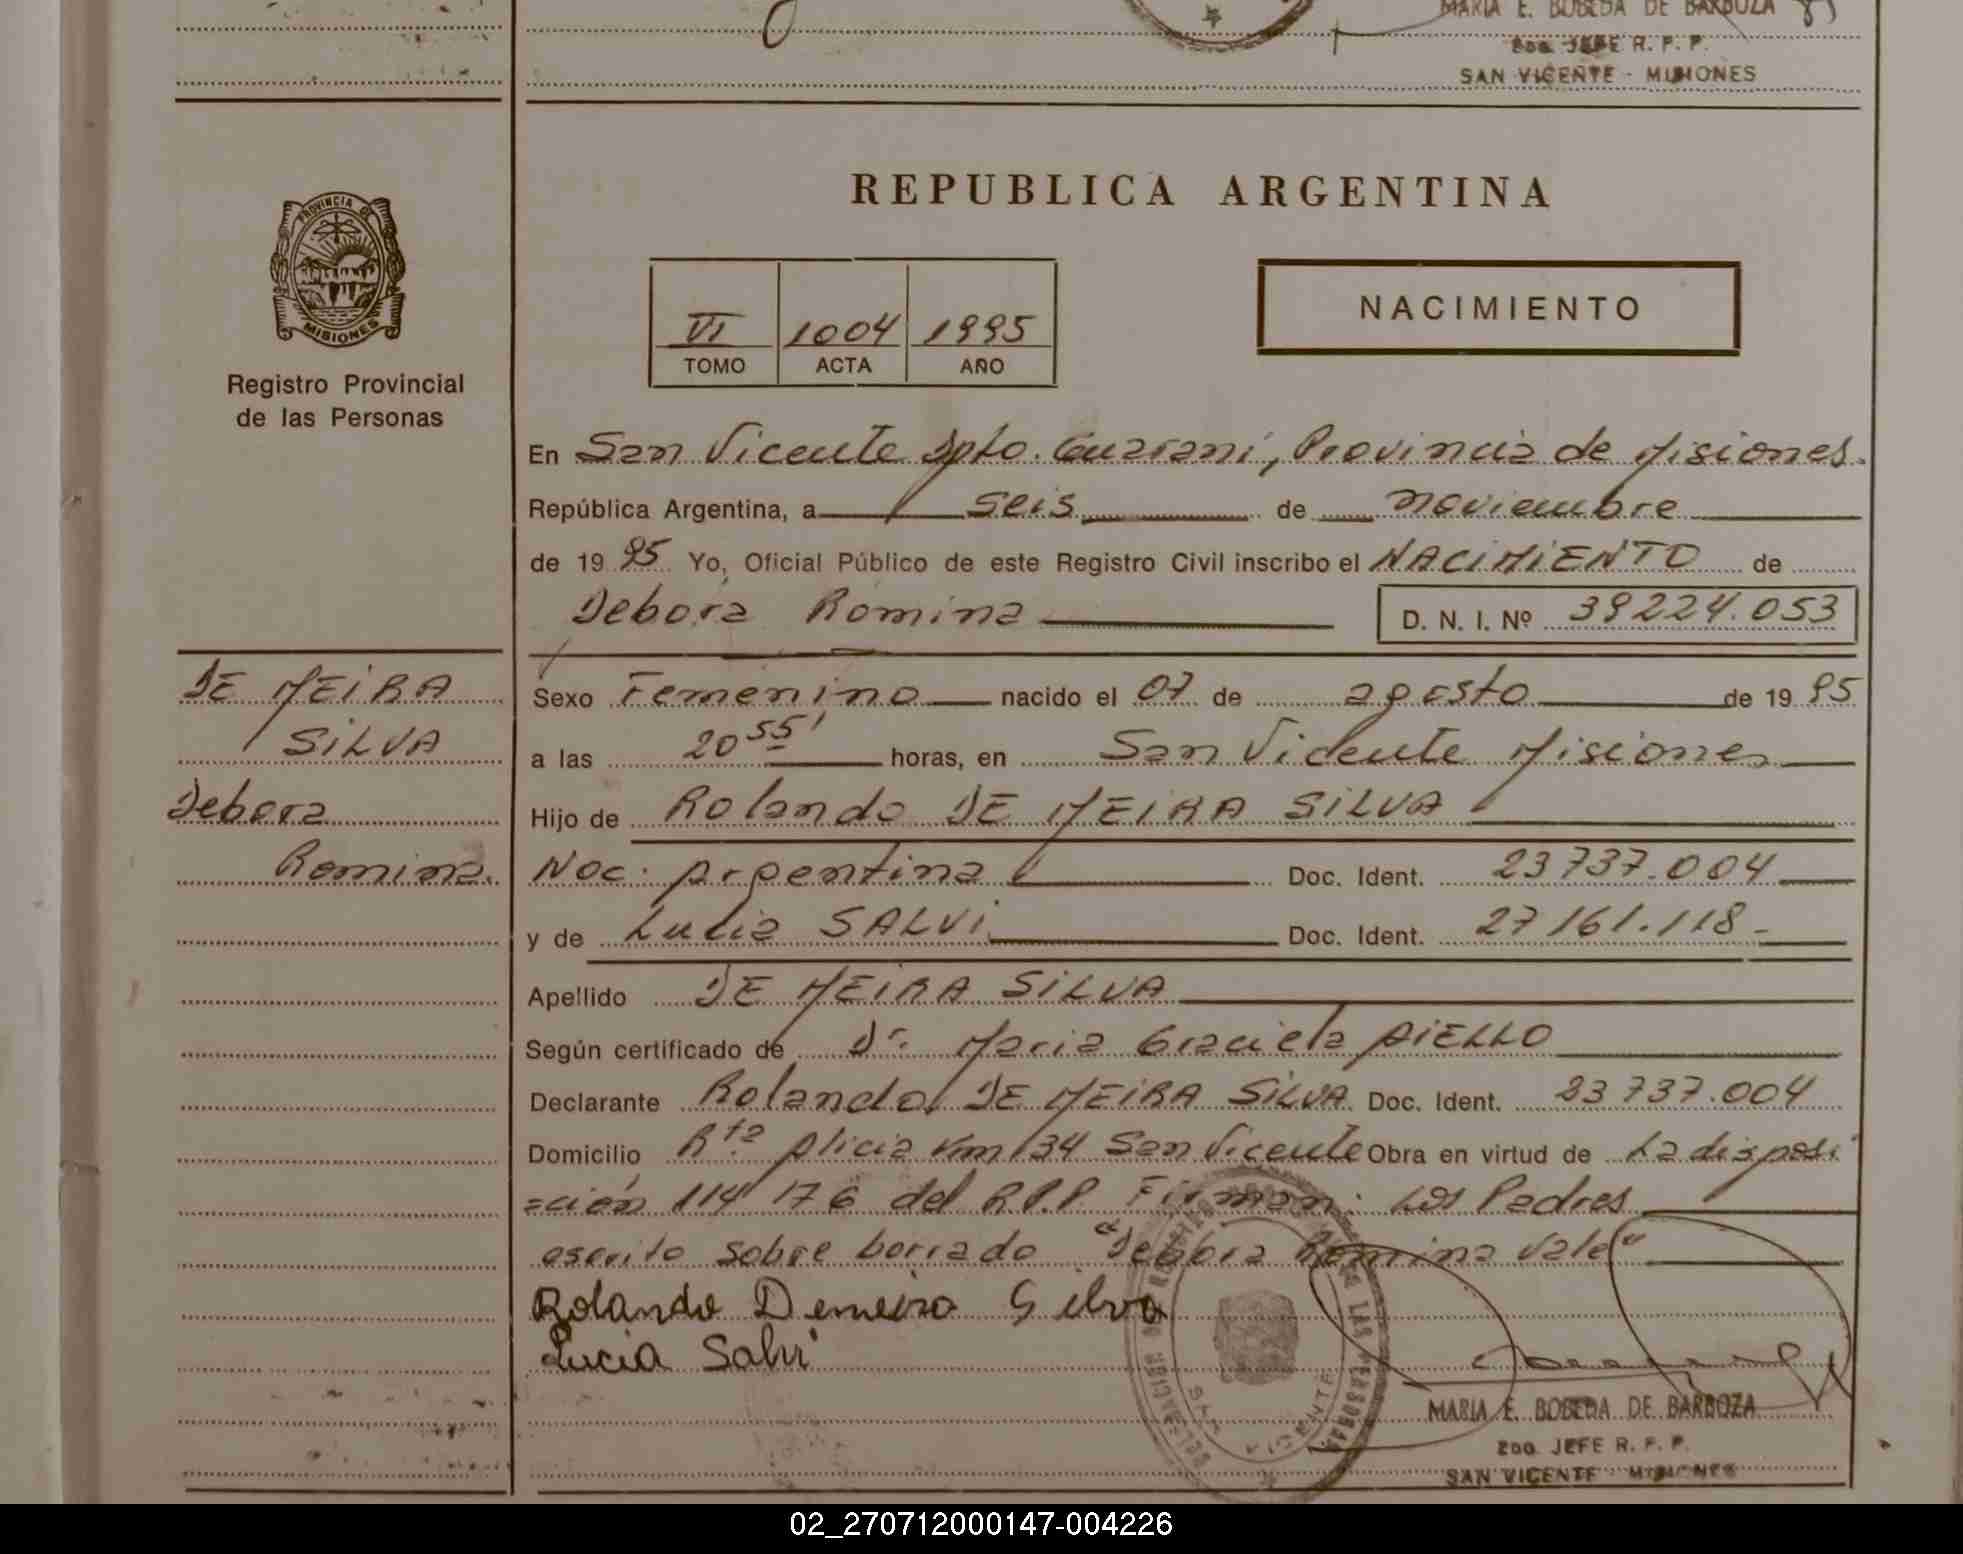 MARIA E. BOBEDA DE BARBOZA
2do. JEFE R. P. P.
SAN VICENTE - MISIONES
REPUBLICA ARGENTINA
PROVINCIA DE
MISIONES
Registro Provincial
de las Personas
VI 1004 1995
TOMO ACTA AÑO
NACIMIENTO
En San Vicente Dpto. Guarani, Provincia de Misiones.
República Argentina, a seis de noviembre
de 19 95 Yo, Oficial Público de este Registro Civil inscribo el NACIMIENTO de
Debora Romina D. N. I. Nº 39224.053
DE MEIRA
SILVA
Debora
Romina.
Sexo Femenino nacido el 07 de agosto de 19 95
a las 20 55' horas, en San Vicente Misiones
Hijo de Rolando DE MEIRA SILVA
Nac. Argentina Doc. Ident. 23737.004
y de Lucia SALVI Doc. Ident. 27161.118-
Apellido DE MEIRA SILVA
Según certificado de Dr. Maria Graciela AIELLO
Declarante Rolando DE MEIRA SILVA Doc. Ident. 23737.004
Domicilio Rta Alicia Km 134 San Vicente Obra en virtud de La disposi
=ción 114/76 del R.P.P. Firman: Los Padres
escrito sobre borrado "Debora Romina Vale"
Rolando Demeira Silva
Lucia Salvi
DELEGACION
SAN VICENTE
MARIA E. BOBEDA DE BARBOZA
2do. JEFE R. P. P.
SAN VICENTE - MISIONES
02_270712000147-004226